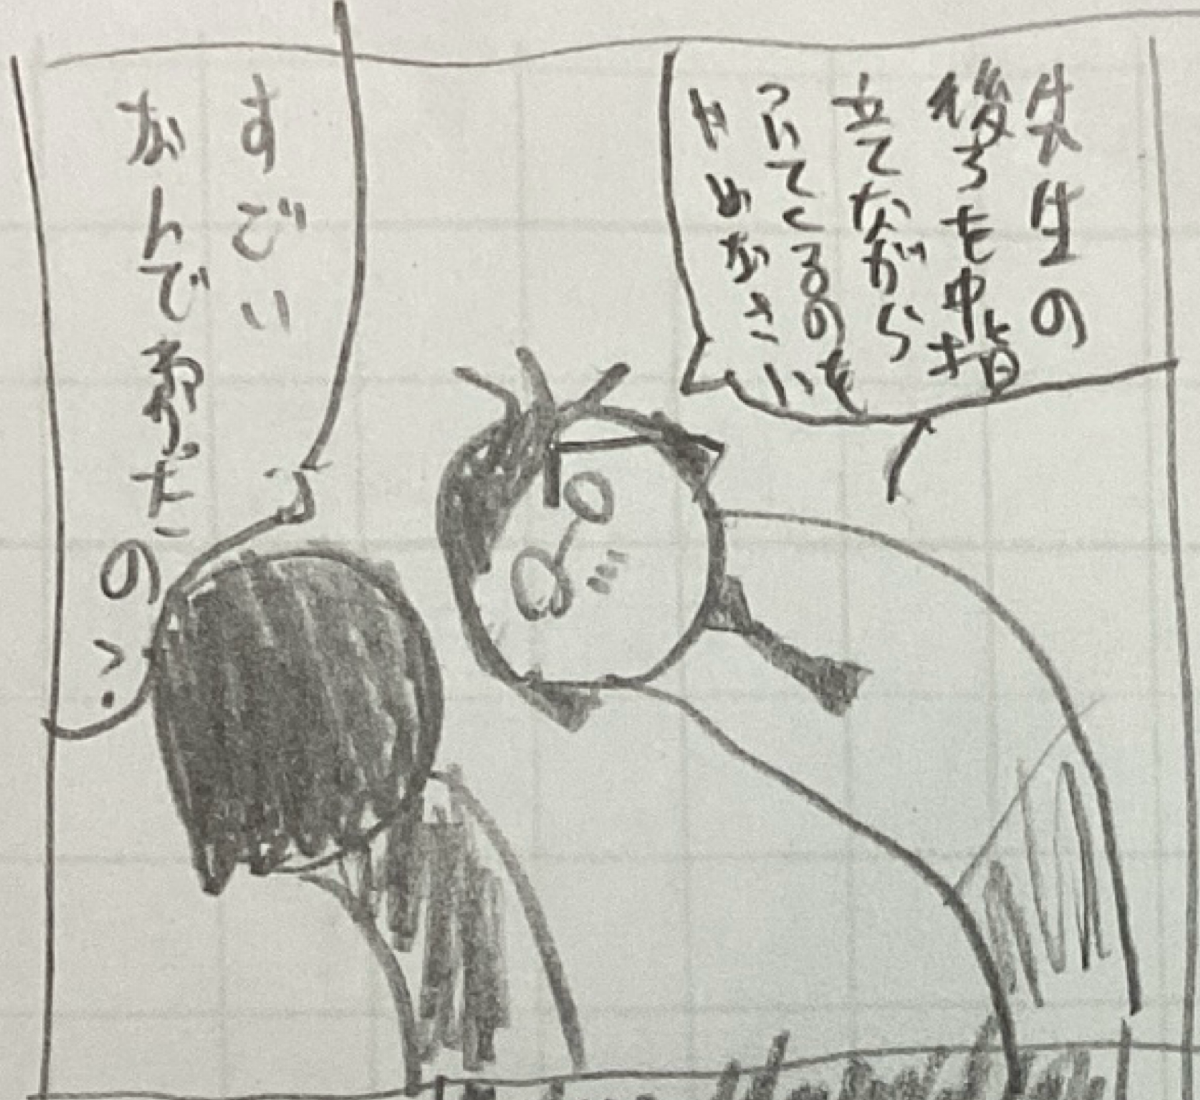 先生の
後ろを中指
立てながら
ついてくるのを
やめなさい
すごい
なんでわかったの?